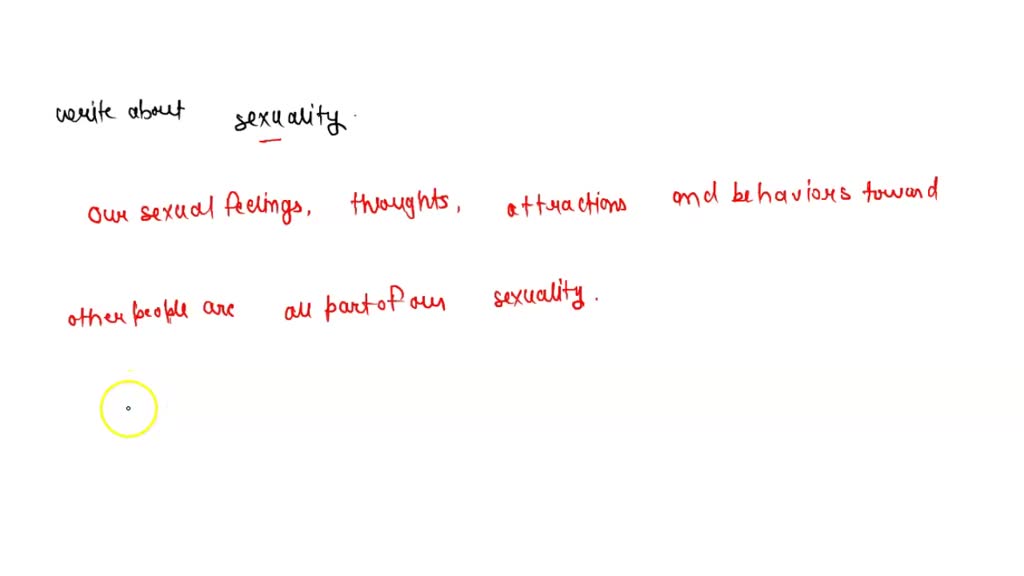 write about sexuality.
our sexual feelings, thoughts, attractions and behaviors toward
other people are all part of our sexuality.